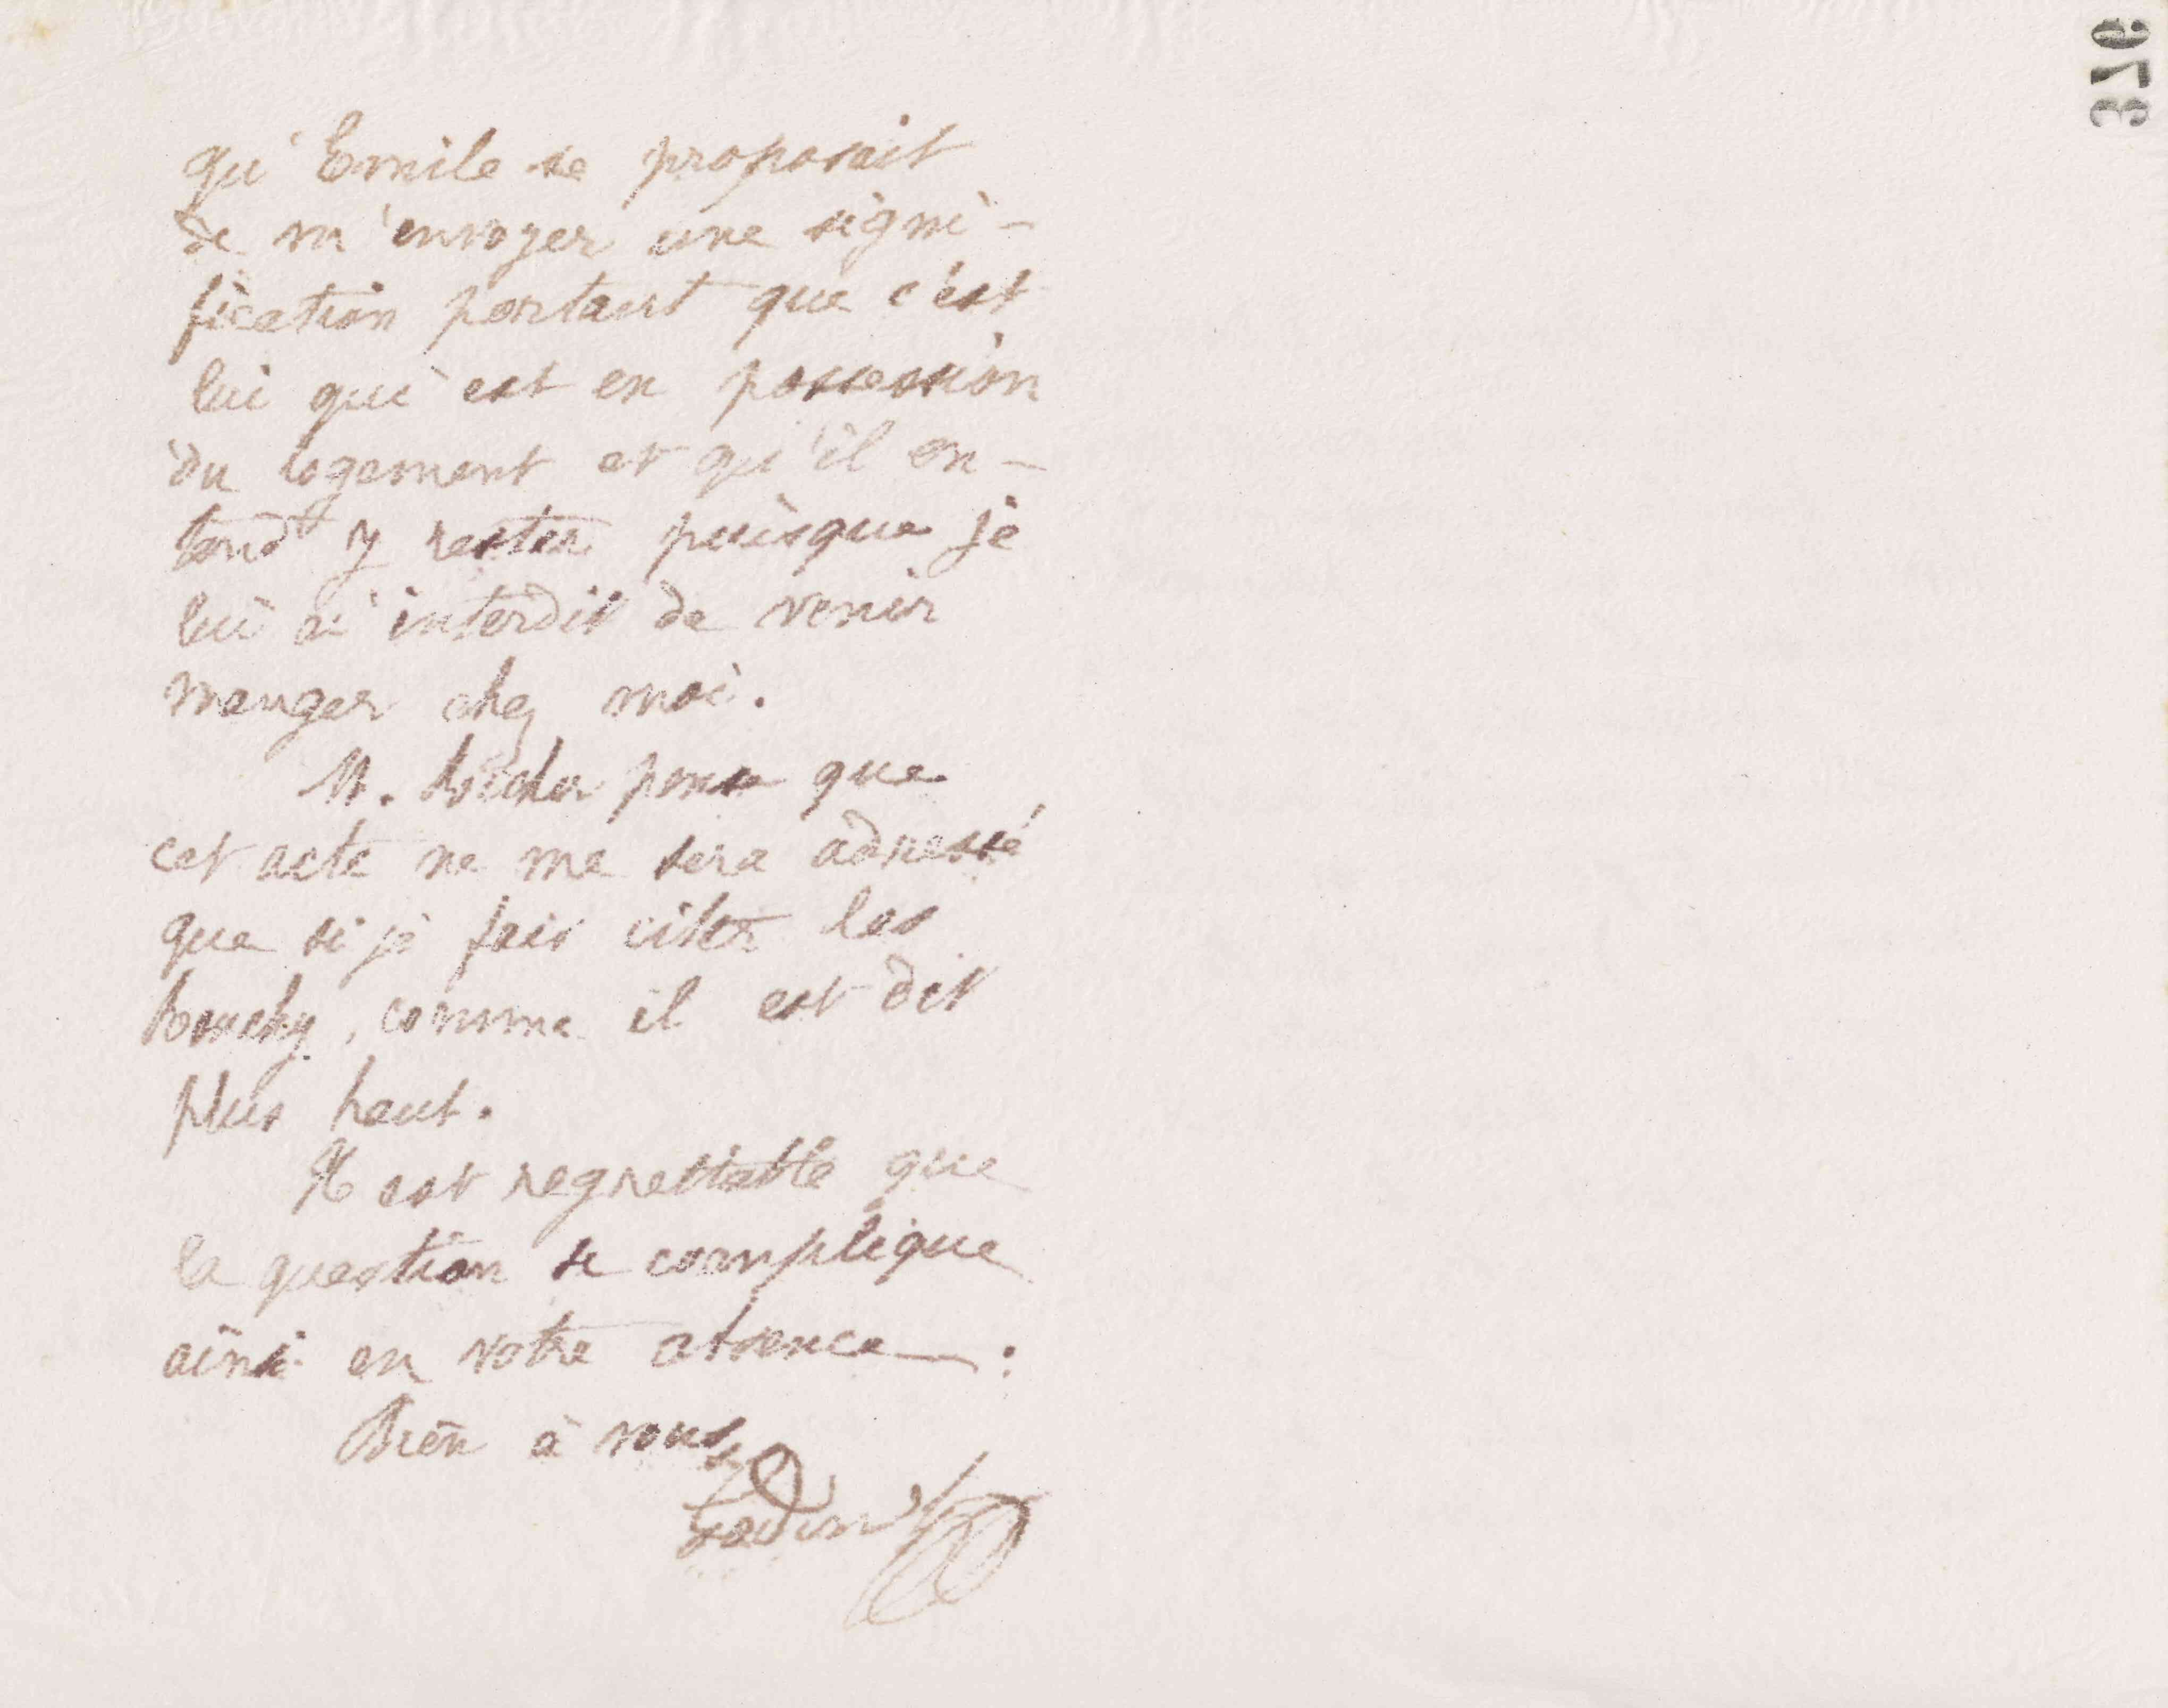 376
qu'Emile se proposait
de m'envoyer une signi-
fication portant que c'est
lui qui est en possession
du logement et qu'il en-
tend y rester puisque je
lui ai interdit de venir
manger chez moi.
M. pense que
cet acte ne me sera adressé
que si je fais citer les
comme il est dit
plus haut.
Il est regrettable que
la question se complique
ainsi en votre absence.
Bien à vous,
Godin